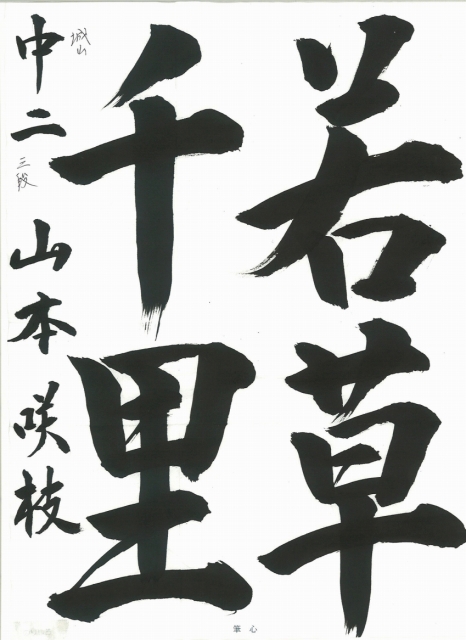 若草
千里
城山
中二 三段 山本咲枝
筆心